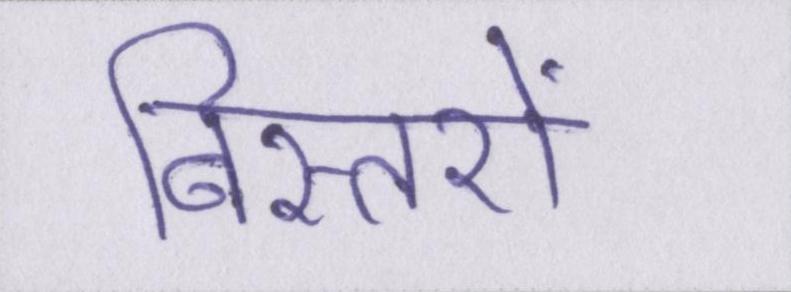 बिस्तरों